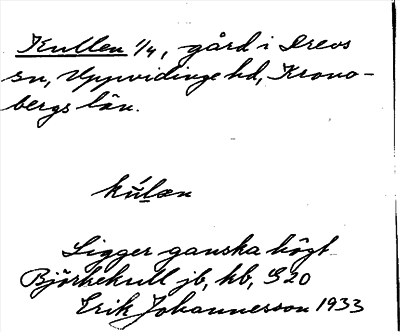 Kullen 1/4, gård i Drevs
sn, Uppvidinge hd, Krono-
bergs län.
kúlæn
Ligger ganska högt
Björkekull jb, kb, G 20
Erik Johannesson 1933